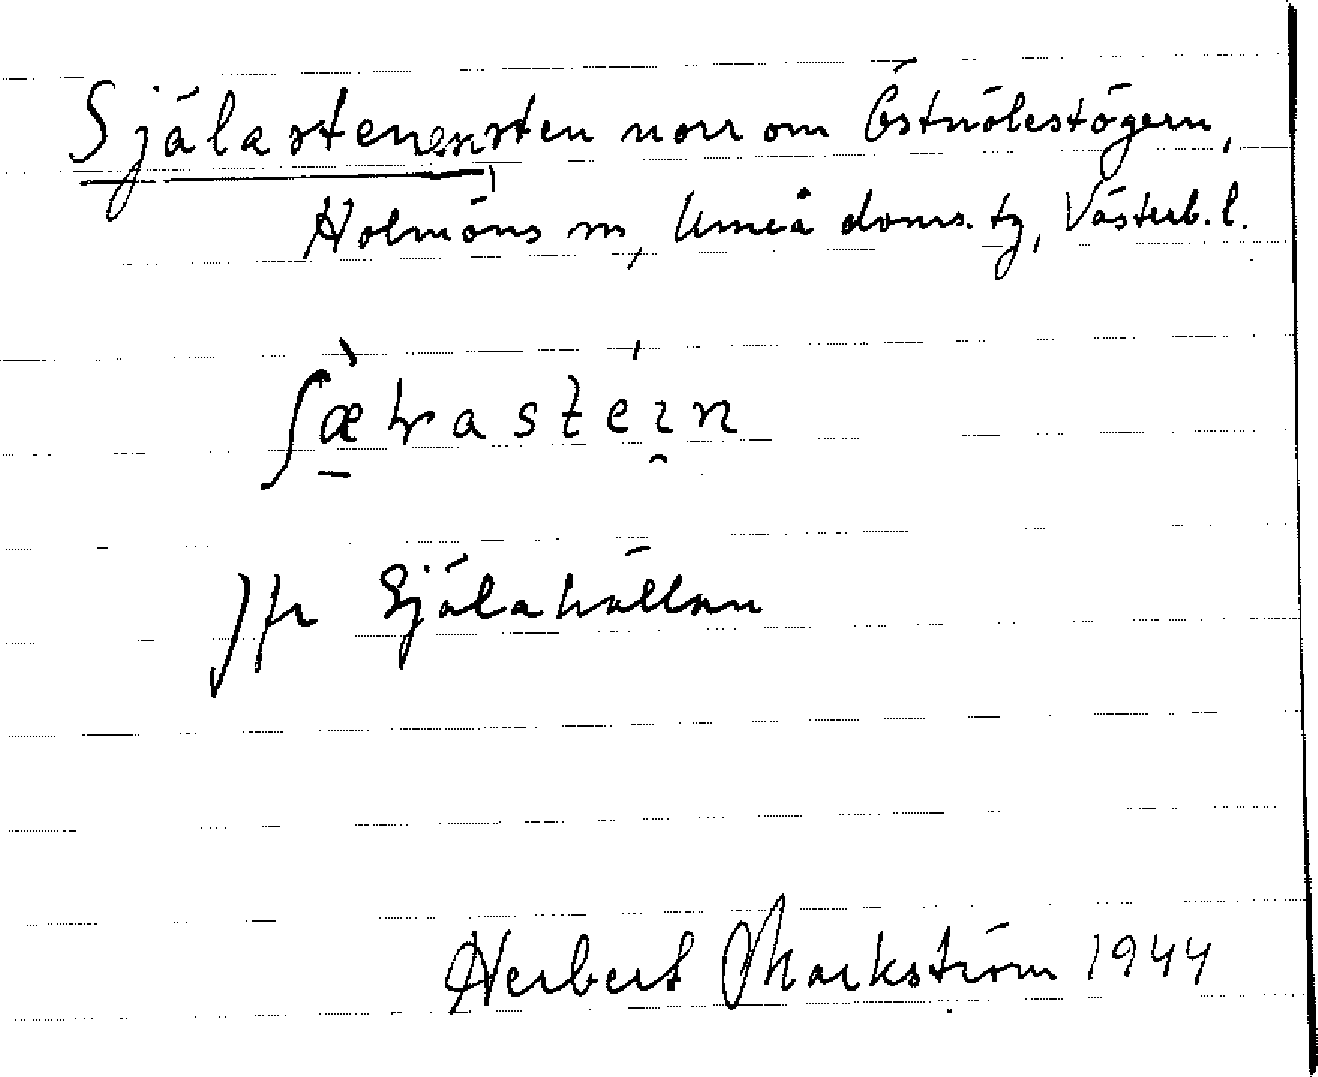 Själastenen, sten norr om Östnölestögern,
Holmöns sn, Umeå doms. tg, Västerb. l.
Jfr Själahällan
Herbert Markström 1944